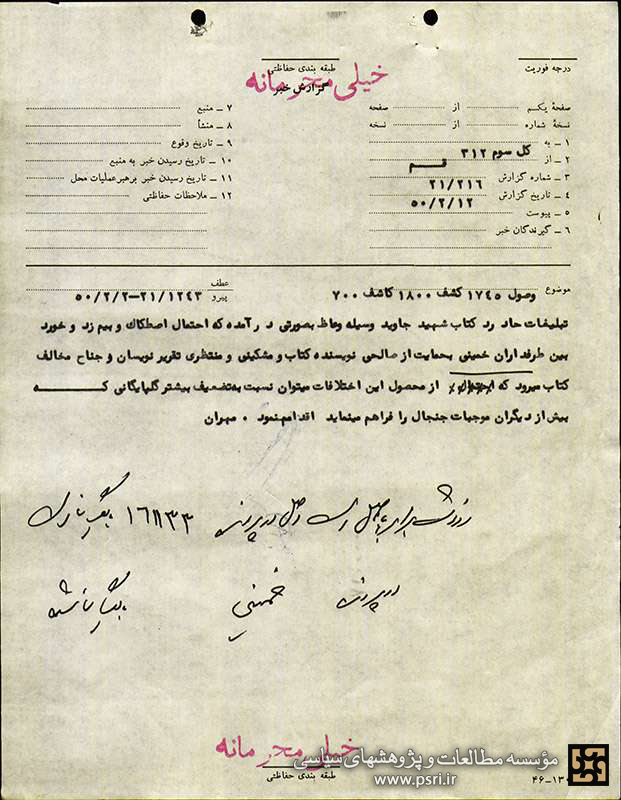 درجه فوریت
طبقه بندی حفاظتی
خیلی محرمانه
گزارش خبر
صفحهٔ یکم از صفحه
نسخهٔ شماره از نسخه
۱ ــ به کل سوم ۳۱۲
۲ ــ از قم
۳ ــ شماره گزارش ۲۱/۲۱۶
۴ ــ تاریخ گزارش ۵۰/۲/۱۲
۵ ــ پیوست
۶ ــ گیرندگان خبر
۷ ــ منبع
۸ ــ منشأ
۹ ــ تاریخ وقوع
۱۰ ــ تاریخ رسیدن خبر به منبع
۱۱ ــ تاریخ رسیدن خبر برهبر عملیات محل
۱۲ ــ ملاحظات حفاظتی
موضوع وصول ۱۷۴۵ کشف ۱۸۰۰ کاشف ۷۰۰
عطف
پیرو ۲۱/۱۲۴۳-۵۰/۲/۲
تبلیغات حاد رد کتاب شهید جاوید وسیله وعاظ بصورتی در آمده که احتمال اصطکاک و بیم زد و خورد
بین طرفداران خمینی بحمایت از صالحی نویسنده کتاب و مشکینی و منتظری تقریر نویسان و جناح مخالف
کتاب میرود که از محصول این اختلافات میتوان نسبت به تضعیف بیشتر گلپایگانی کــه
بیش از دیگران موجبات جنجال را فراهم مینماید اقدام نمود ۰ مهران
در پرونده
۱۶۸۳۳
در پرونده خمینی
خیلی محرمانه
طبقه بندی حفاظتی
مؤسسه مطالعات و پژوهشهای سیاسی
www.psri.ir